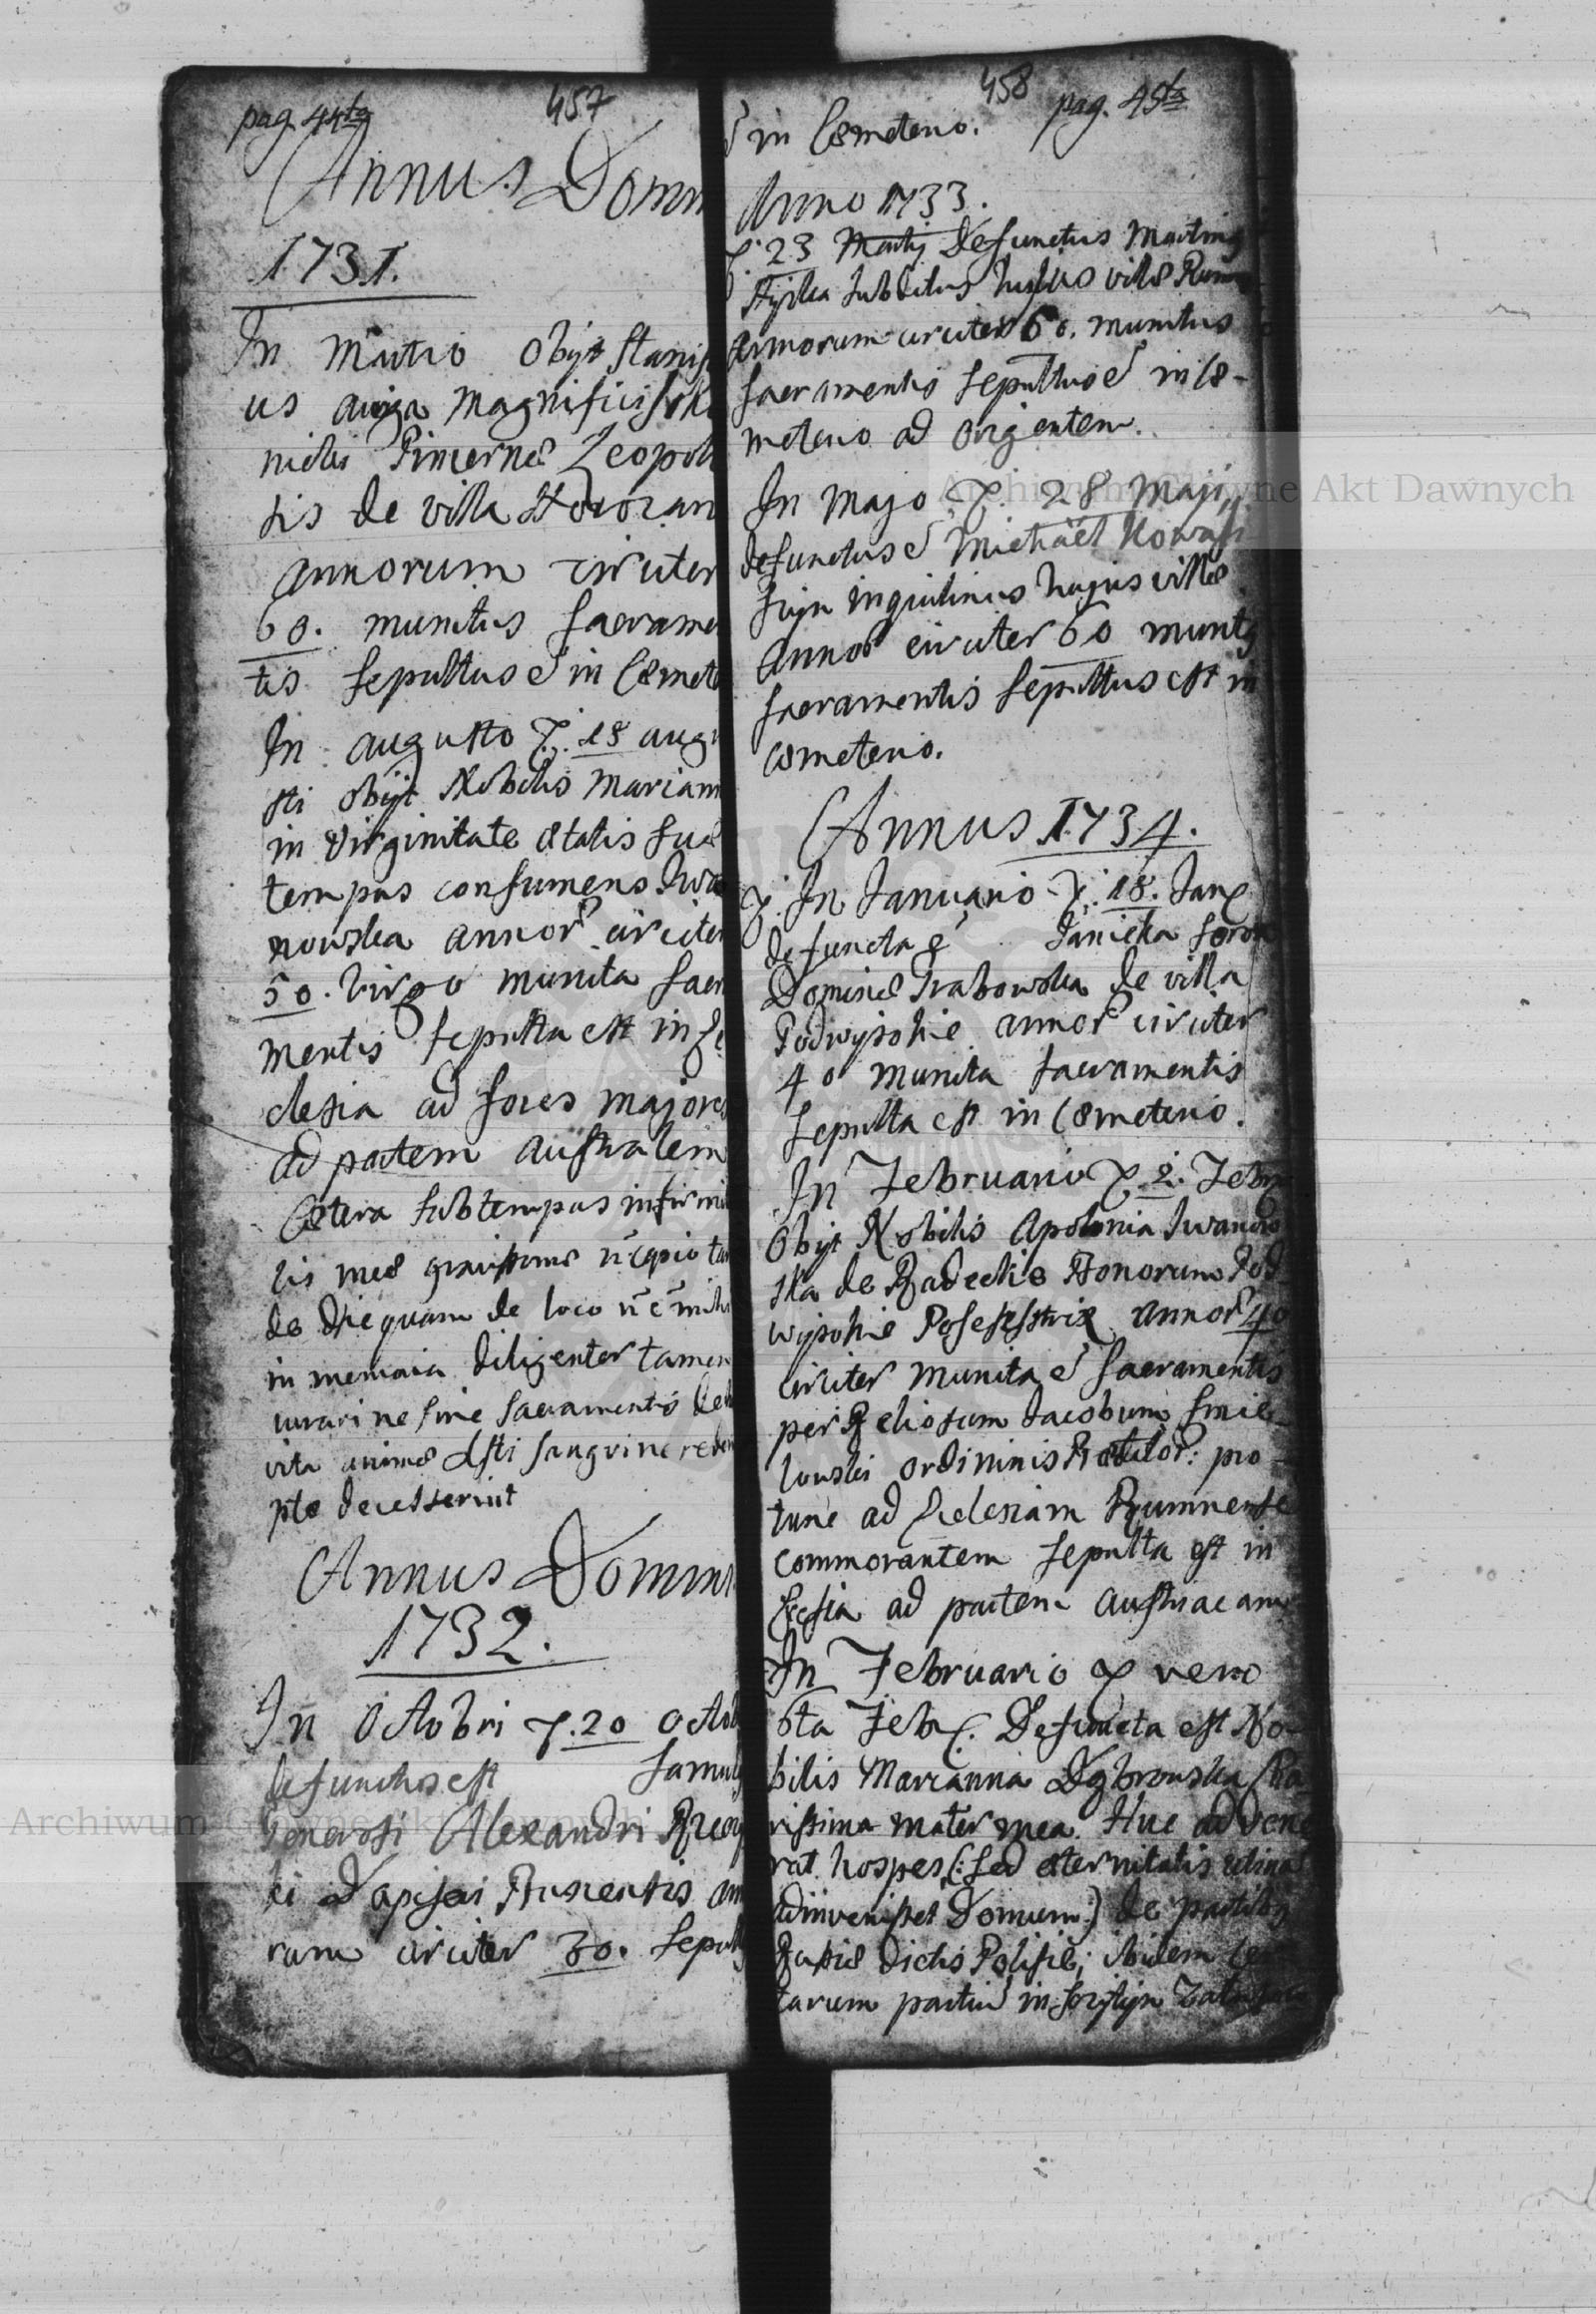 pag. 44ta 457
Annus Domi
1731.
In Martio obijt Stanis
us auriga Magnifici
nielis Pincernæ Leopol
sis de villa
annorum circiter
60. munitus Sacramen
tis sepultus ē in Cæmete
In Augusto D. 18 augu
sti obijt Nobilis Mariann
in virginitate ætatis suæ
tempus consumens Iwa
nowska annor circiter
50. virgo munita Sacra
mentis sepulta est in Ec
clesia ad fores majores
ad partem Australem
Cætera sub tempus infirmita
tis meæ gravissimæ tam
de die quam de loco
in memoria diligenter tamen
curavi ne sine Sacramentis de
vita animæ Xsti sanguine redem
ptæ decesserint
Annus Domini
1732.
In Octobri D. 20 Octob
defunctus est famulus
Generosi Alexandri
ki Dapiferi annor
rum circiter 30. sepult
458 pag. 45ta
ē in Cæmeterio.
Anno 1733.
D. 23 Martij Defunctus Martinus
subditus hujus villæ Rumno
annorum circiter 60. munitus
sacramentis sepultus ē in Cæ-
meterio ad orientem.
In Majo D. 28 Maji
defunctus ē Michael Kowal
inquilinus hujus villæ
annor circiter 60 munitus
sacramentis sepultus est in
cæmeterio.
Annus 1734.
In Januario D. 18. Jan
defuncta ē Janicka soror
Dominæ Grabowska de villa
Podwysokie annor circiter
40 munita sacramentis
sepulta est in Cæmeterio.
In Februario D. 2. Febr
obijt Nobilis Apolonia Iwanow
ska de Radeckie Bonorum Pod
wysokie Possessstrix annor 40
circiter munita ē Sacramentis
per Religiosum Jacobum
ordininis pro
tunc ad Ecclesiam Rumnense
commorantem sepulta est in
Ecclesia ad partem Austriacam
In Februario D vero
6ta Febr. Defuncta est No-
bilis Marianna Dąbrowska Cha
rissima mater mea. Huc advene
rat hospes (: sed æternitatis utinam
adinvenisset Domum :) de partibus
Russiæ dictis Polisie; ibidem
tarum partiū in